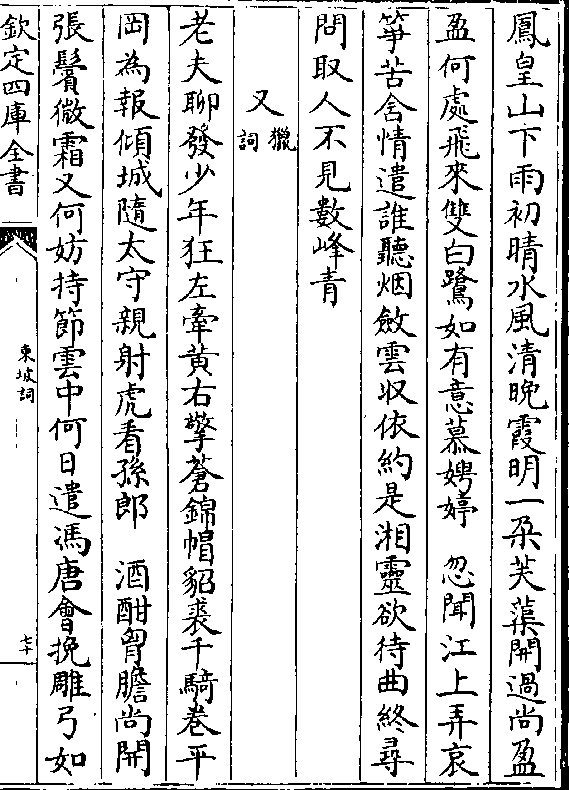 鳳皇山下雨初晴水風清晚霞明一朶芙蕖開過尚盈
盈何處飛來雙白鷺如有意慕娉婷　忽聞江上弄哀
箏苦含情遣誰聽烟斂雲収依約是湘靈欲待曲終尋
問取人不見數峰青
又獵詞
老夫聊發少年狂左牽黄右擎蒼錦帽貂裘千騎卷平
岡為報傾城隨太守親射虎看孫郎　酒酣胷膽尚開
張鬢微霜又何妨持節雲中何日遣馮唐會挽雕弓如
欽定四庫全書
東坡詞
七十